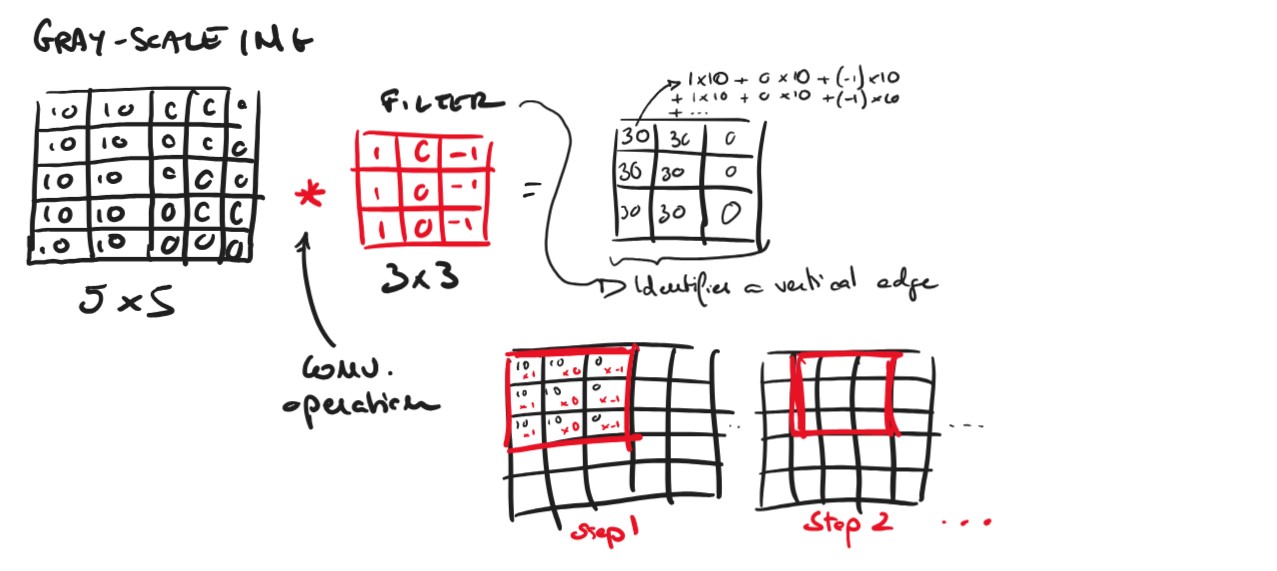 GRAY-SCALE IMG
10 10 0 0 0
10 10 0 0 0
10 10 0 0 0
10 10 0 0 0
10 10 0 0 0
5x5
*
CONV.
operation
FILTER
1 0 -1
1 0 -1
1 0 -1
3x3
=
1x10 + 0x10 + (-1)x10
+ 1x10 + 0x10 + (-1)x0
+ ...
30 30 0
30 30 0
30 30 0
Identifies a vertical edge
10 x1 10 x0 0 x-1
10 x1 10 x0 0 x-1
10 x1 10 x0 0 x-1
...
Step 1
....
Step 2
...